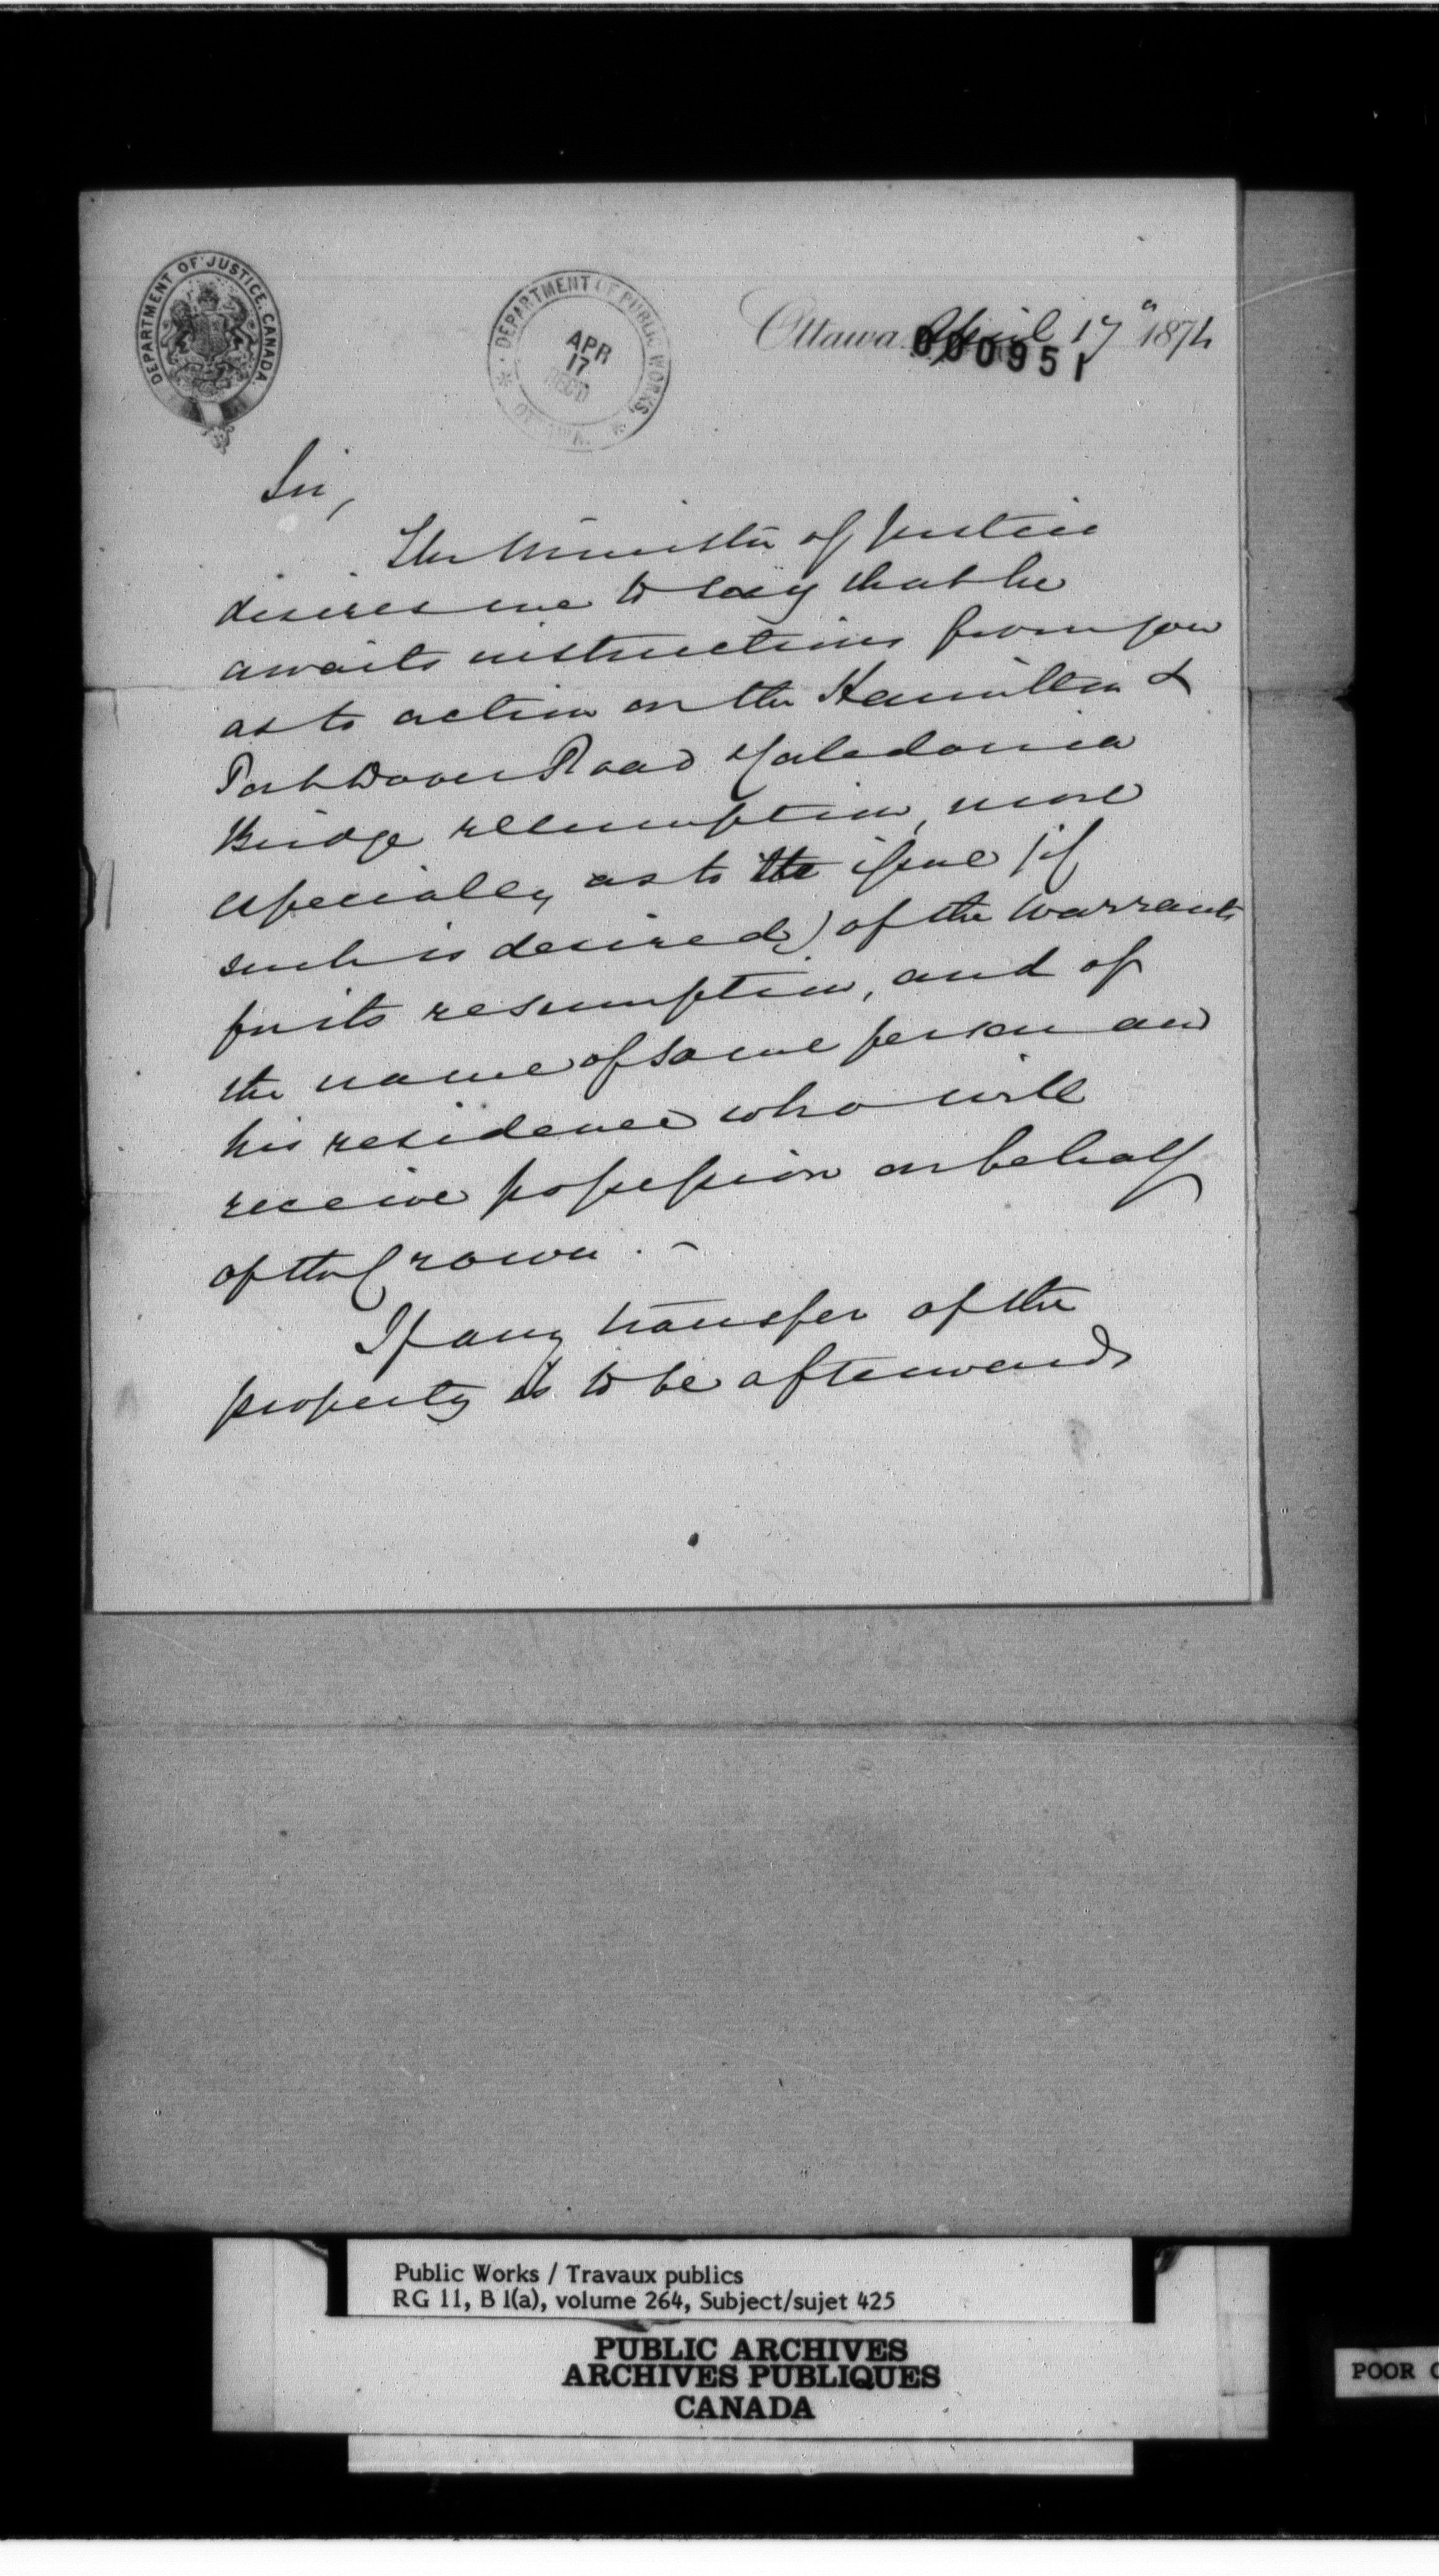 DEPARTMENT OF JUSTICE, CANADA.
DEPARTMENT OF PUBLIC WORKS,
APR
17
REC'D
OTTAWA.
Ottawa April 17th 1874
000951
Sir,
The Minister of Justice
desires me to say that he
awaits instructions from you
as to action on the Hamilton &
Port Dover Road & Caledonia
Bridge resumption, more
especially as to the issue (if
such is desired) of the warrants
for its resumption, and of
the name of some person and
his residence who will
receive possession on behalf
of the Crown. -
If any transfer of the
property is to be afterwards
Public Works / Travaux publics
RG 11, B 1(a), volume 264, Subject/sujet 425
PUBLIC ARCHIVES
ARCHIVES PUBLIQUES
CANADA
POOR